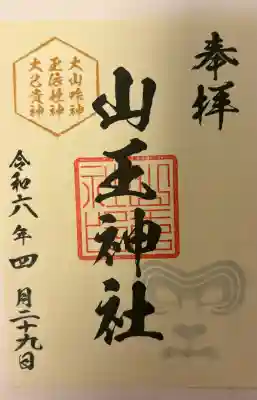 奉拝
山王神社
大山咋神
玉依姫神
大己貴神
令和六年四月二十九日